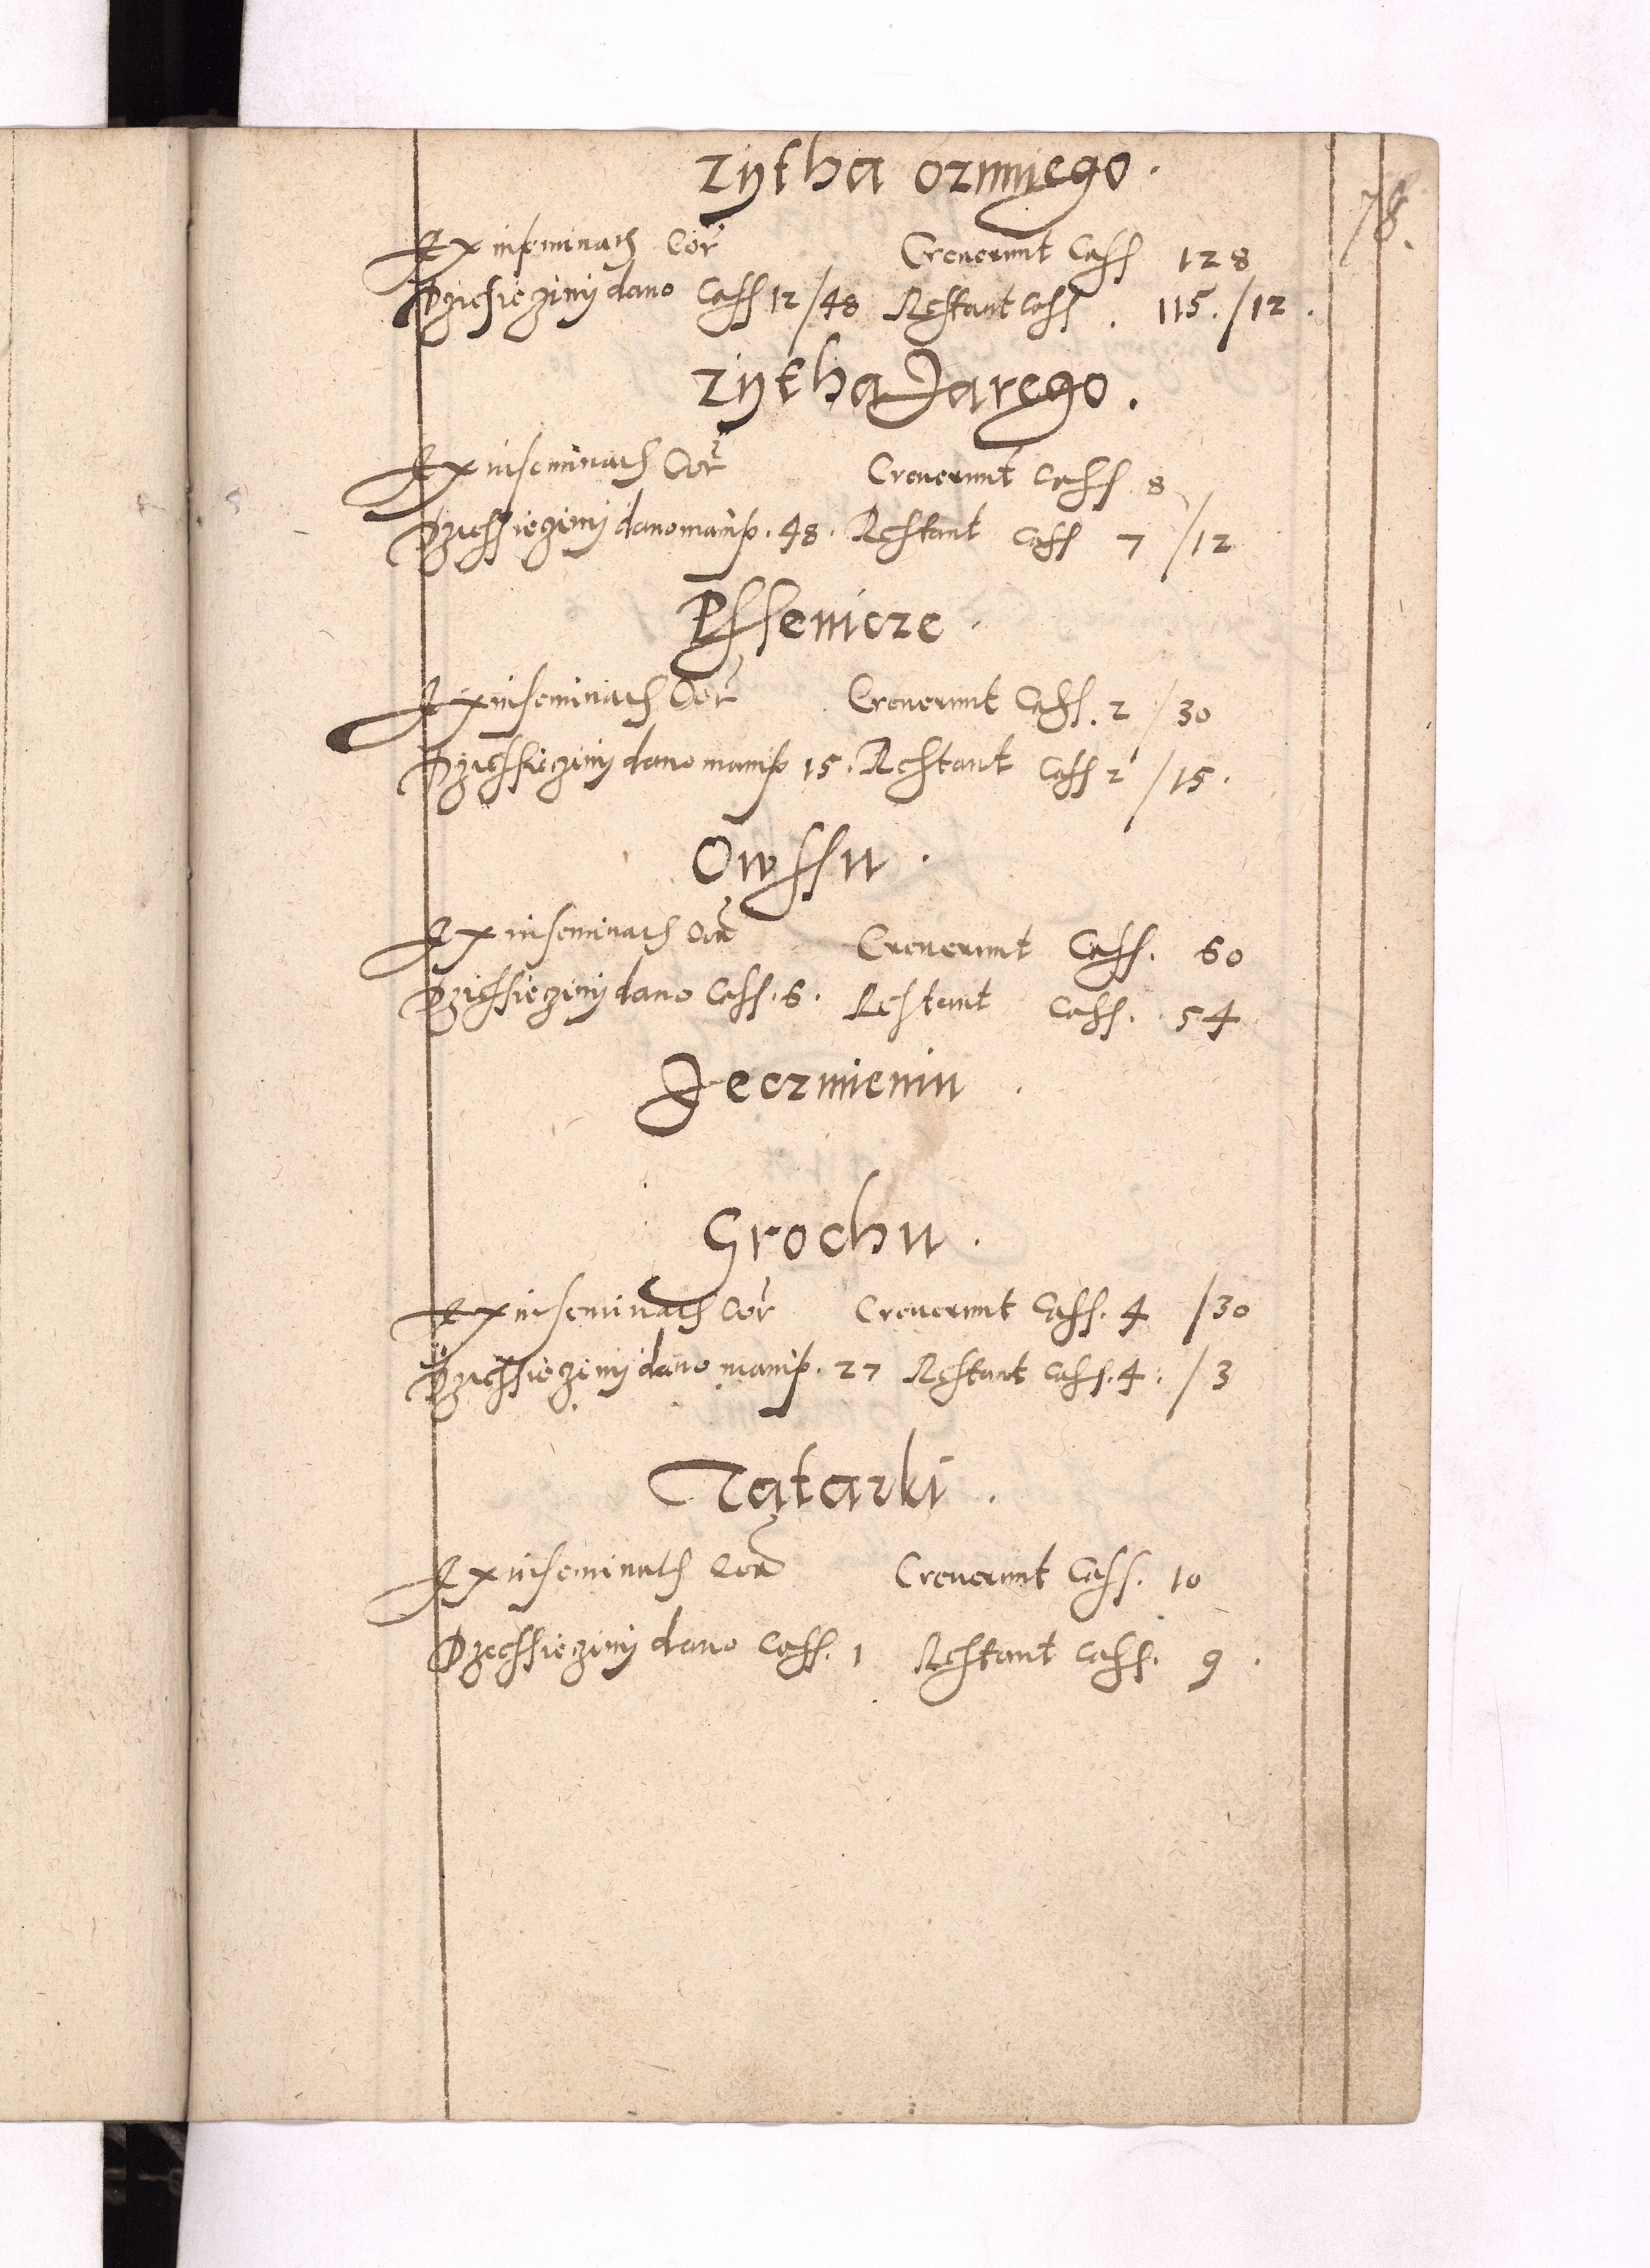 78.
Zytha ozimiego.
Ex inseminatis Cor Creverunt Cass 128
Dziesieziny dano Cass 12/48 Restant Cass. 115./12.
Zytha Jarego.
Ex inseminatis Cor Creverunt Cass. 8
Dziessieziny dano manip. 48. Restant Cass 7 /12
Pssenicze.
Ex inseminatis Cor Creverunt Cass. 2 /30
Dziessieziny dano manip 15. Restant Cass 2 /15.
Owssu.
Ex inseminatis Cor Creverunt Cass. 60
Dziessieziny dano Cass. 6. Restant Cass. 54
Jeczmieniu.
Grochu.
Ex inseminatis Cor Creverunt Cass. 4 /30
Dziessieziny dano manip. 27 Restant Cass. 4. /3
Tatarki.
Ex inseminatis Cor Creverunt Cass. 10
Dzessieziny dano Cass. 1 Restant Cass. 9.